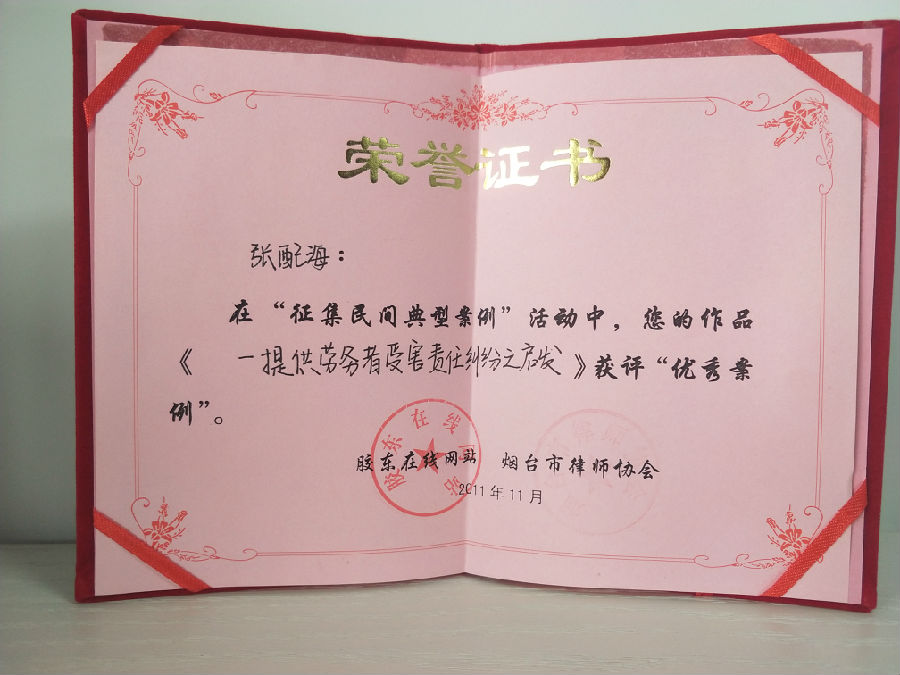 荣誉证书
张配海：
在“征集民间典型案例”活动中，您的作品
《一提供劳务者受害责任纠纷之启发》获评“优秀案
例”。
胶东在线网站 烟台市律师协会
2011年11月
胶东在线网站